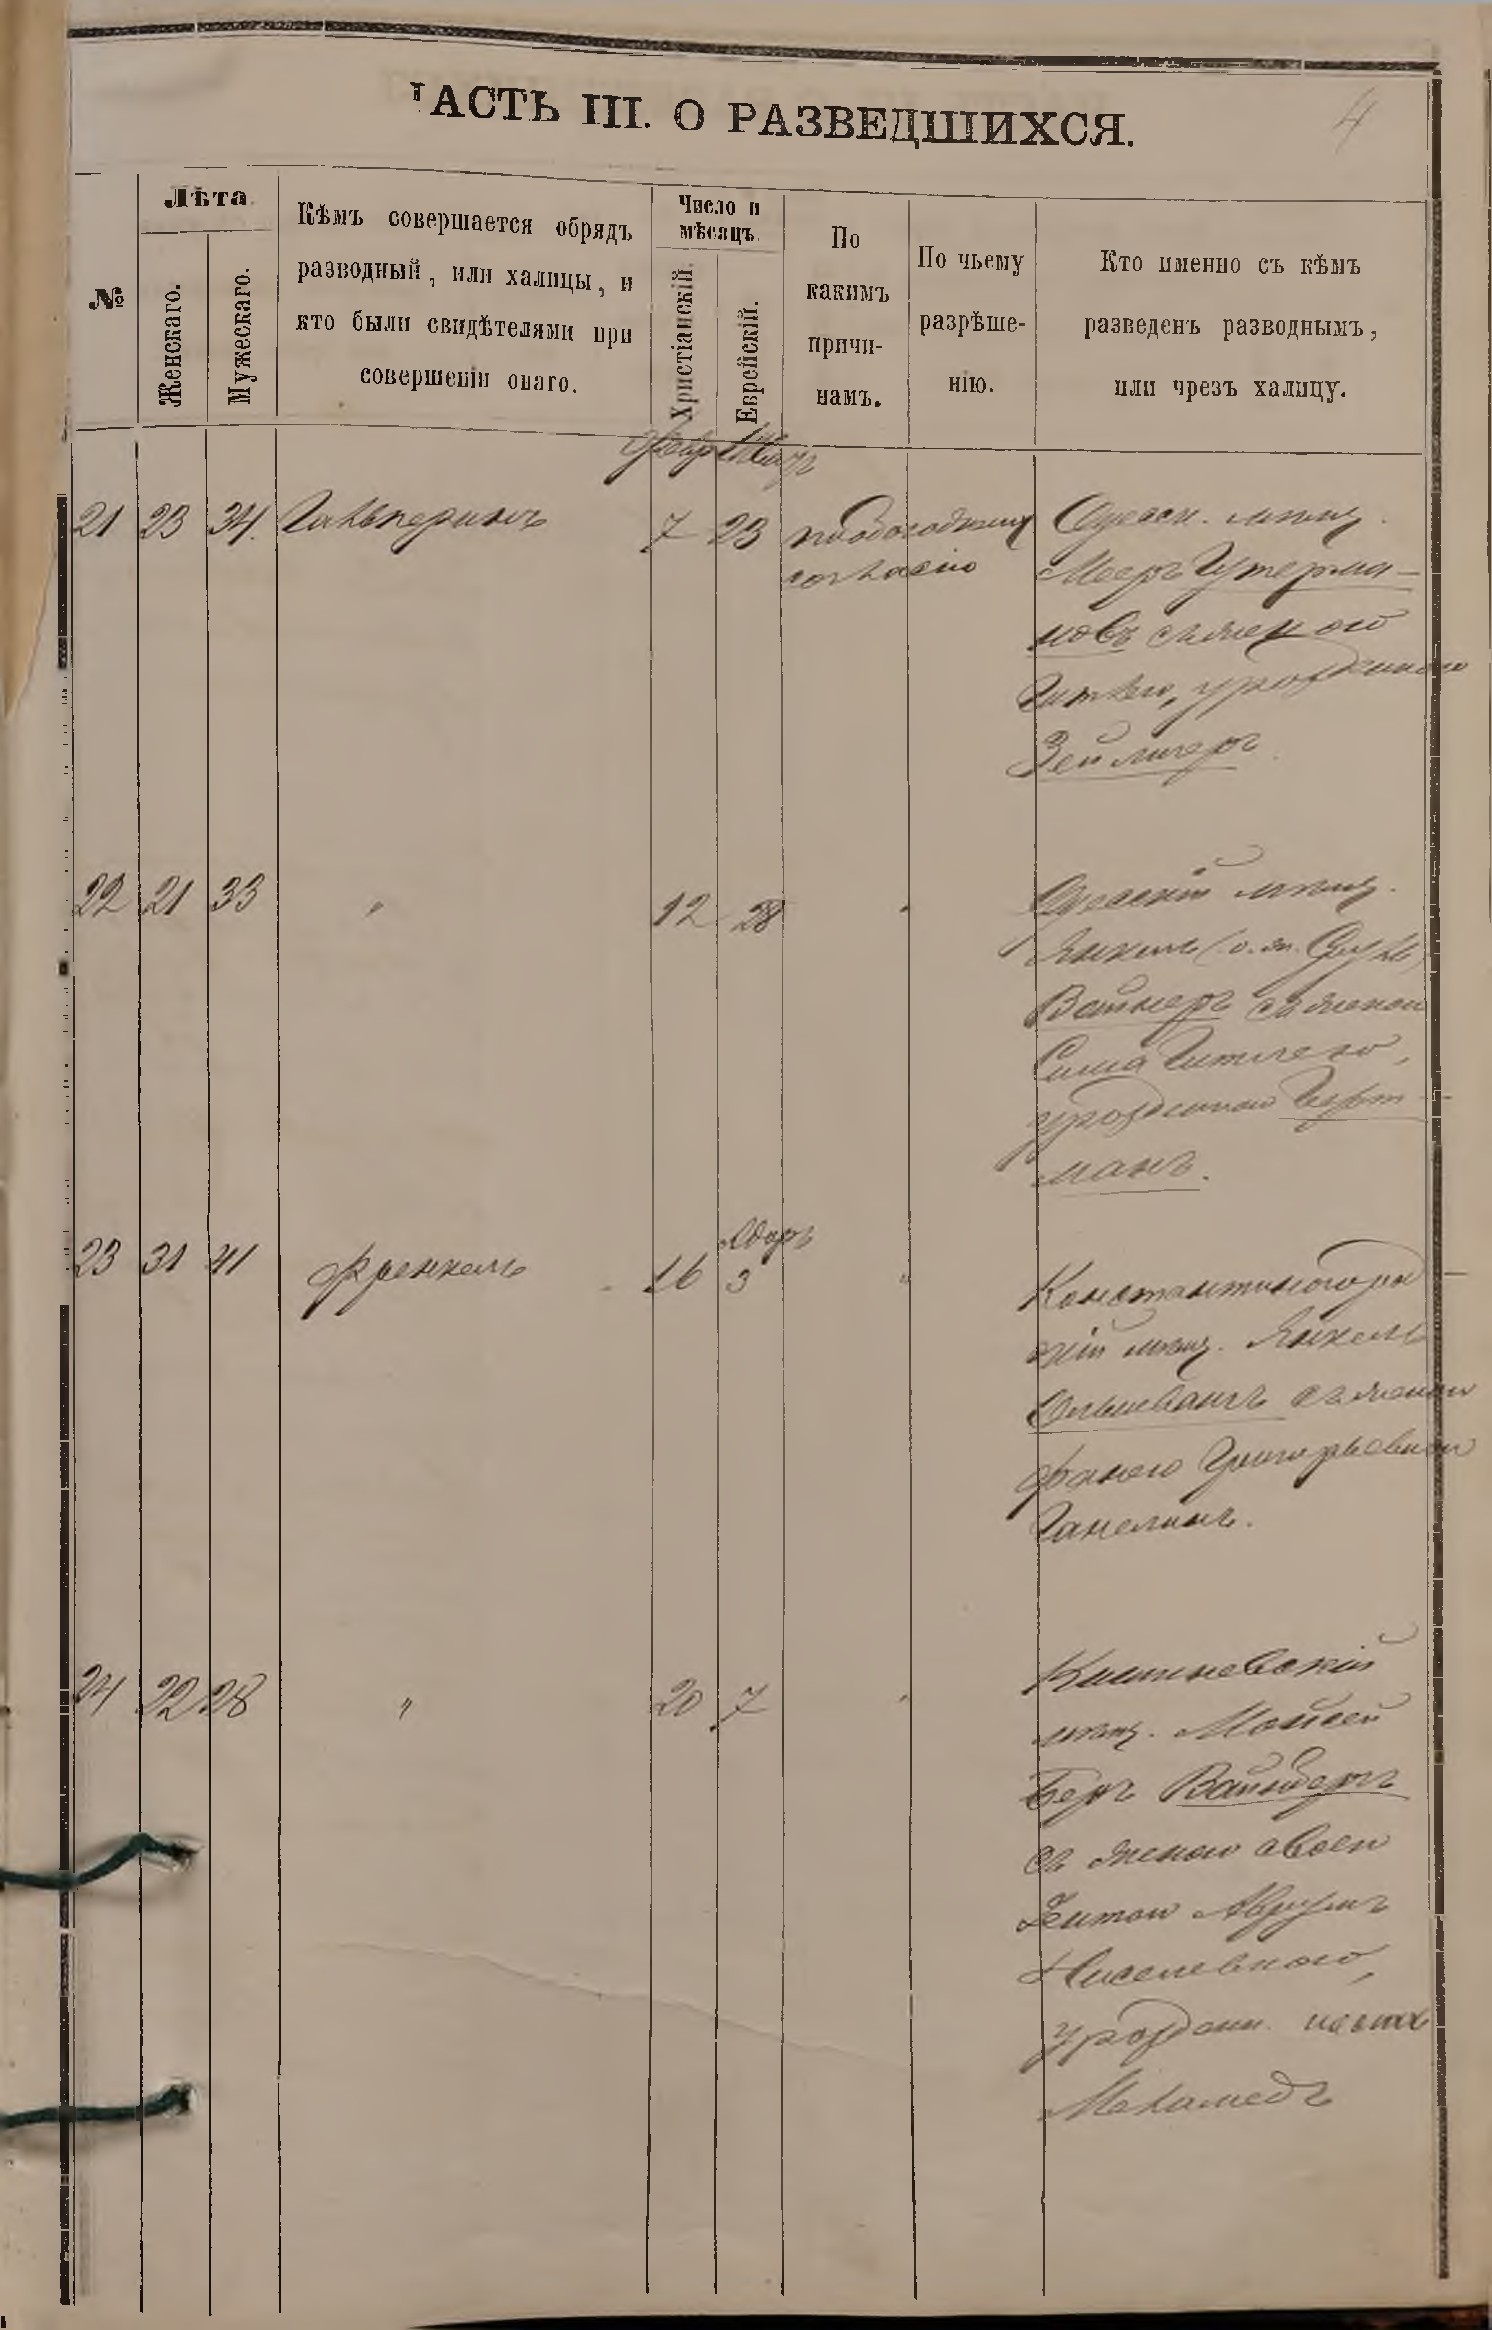 ЧАСТЬ III. О РАЗВЕДШИХСЯ.
4
№
Лѣта
Женскаго.
Мужескаго.
Кѣмъ совершается обрядъ
разводный, или халицы, и
кто были свидѣтелями при
совершеніи онаго.
Число и
мѣсяцъ.
Христіанскій.
Еврейскій.
По
какимъ
причи-
намъ.
По чьему
разрѣше-
нію.
Кто именно съ кѣмъ
разведенъ разводнымъ,
или чрезъ халицу.
21 23 34 Гальперинъ 7 23
согласію
Одесск. мѣщ.
Мееръ Гутерма-
новъ съ женою
Гитлею, урожденною
Зейлигеръ
22 21 33 " 12 28 "
Одесскій мѣщ.
Вайнеръ съ женою
Сима Гитлею,
урожденною Герт-
манъ.
23 31 41 Френкель 16
Адаръ
3 "
Константиноград-
скій мѣщ. Янкель
съ женою
Фанею Григорьевною
Ганелинъ.
24 22 28 " 20 7 "
Кишиневскій
мѣщ. Мойсей
Беръ Вайнбергъ
съ женою своею
Аврумъ
урожденн.
Меламедъ